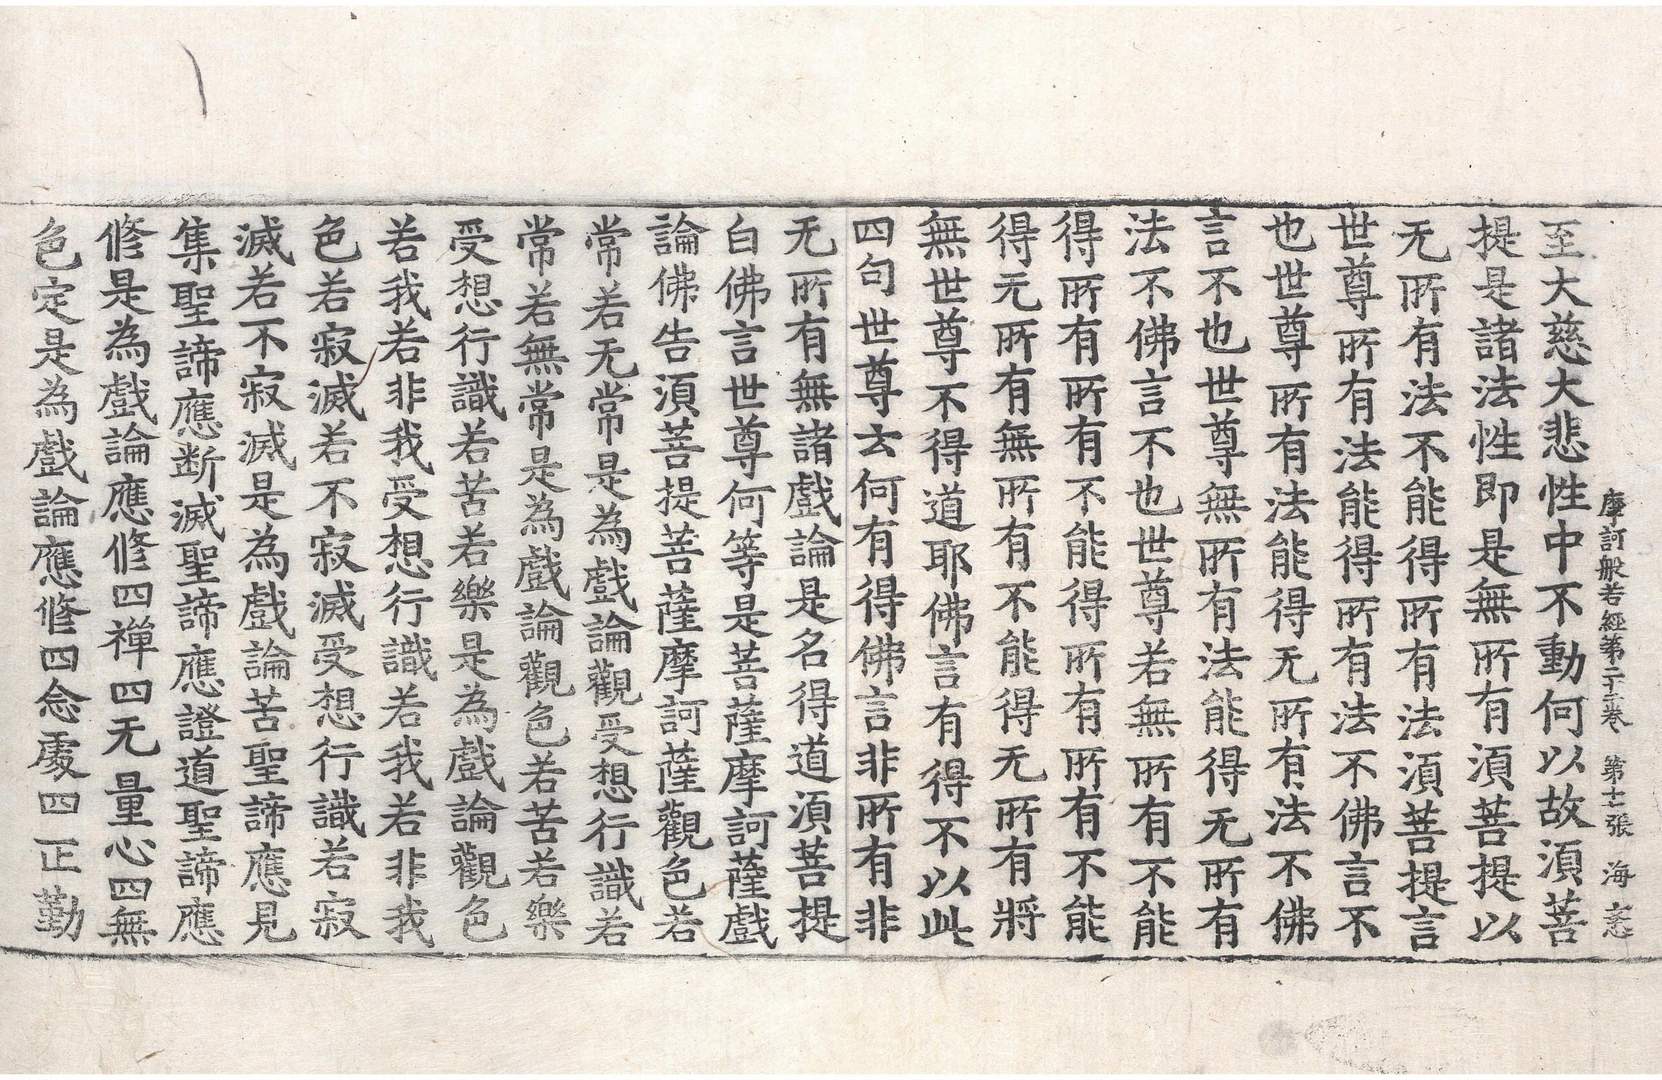 摩訶般若經第二十三卷 第十七張 海 忞
至大慈大悲性中不動何以故湏菩
提是諸法性即是無所有湏菩提以
无所有法不能得所有法湏菩提言
世尊所有法能得所有法不佛言不
也世尊所有法能得无所有法不佛
言不也世尊無所有法能得无所有
法不佛言不也世尊若無所有不能
得所有所有不能得所有所有不能
得无所有無所有不能得无所有將
無世尊不得道耶佛言有得不以此
四句世尊云何有得佛言非所有非
无所有無諸戲論是名得道湏菩提
白佛言世尊何等是菩薩摩訶薩戲
論佛告湏菩提菩薩摩訶薩觀色若
常若无常是為戲論觀受想行識若
常若無常是為戲論觀色若苦若樂
受想行識若苦若樂是為戲論觀色
若我若非我受想行識若我若非我
色若寂滅若不寂滅受想行識若寂
滅若不寂滅是為戲論苦聖諦應見
集聖諦應断滅聖諦應證道聖諦應
修是為戲論應修四禪四无量心四無
色定是為戲論應修四念處四正勤